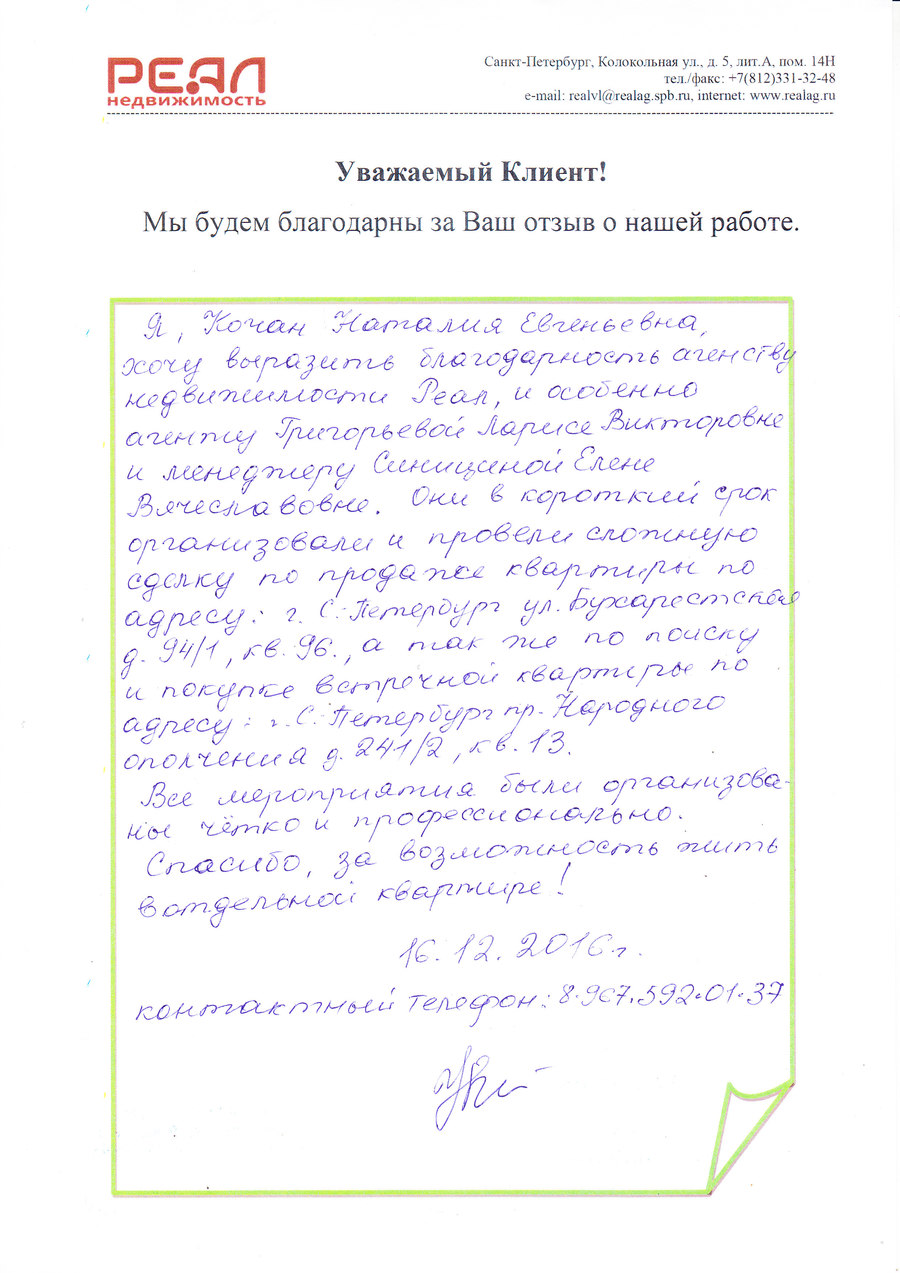 РЕАЛ
недвижимость
Санкт-Петербург, Колокольная ул., д. 5, лит.А, пом. 14Н
тел./факс: +7(812)331-32-48
e-mail: realvl@realag.spb.ru, internet: www.realag.ru
Уважаемый Клиент!
Мы будем благодарны за Ваш отзыв о нашей работе.
Я, Кочан Наталия Евгеньевна,
хочу выразить благодарность агенству
недвижимости Реал, и особенно
агенту Григорьевой Ларисе Викторовне
и менеджеру Синициной Елене
Вячеславовне. Они в короткий срок
организовали и провели сложную
сделку по продаже квартиры по
адресу: г. С.-Петербург ул. Бухарестская
д. 94/1, кв. 96., а так же по поиску
и покупке встречной квартиры по
адресу: г. С.-Петербург пр. Народного
ополчения д. 241/2, кв. 13.
Все мероприятия были организова-
ны чётко и профессионально.
Спасибо, за возможность жить
в отдельной квартире!
16.12.2016г.
контактный телефон: 8.967.592.01.37